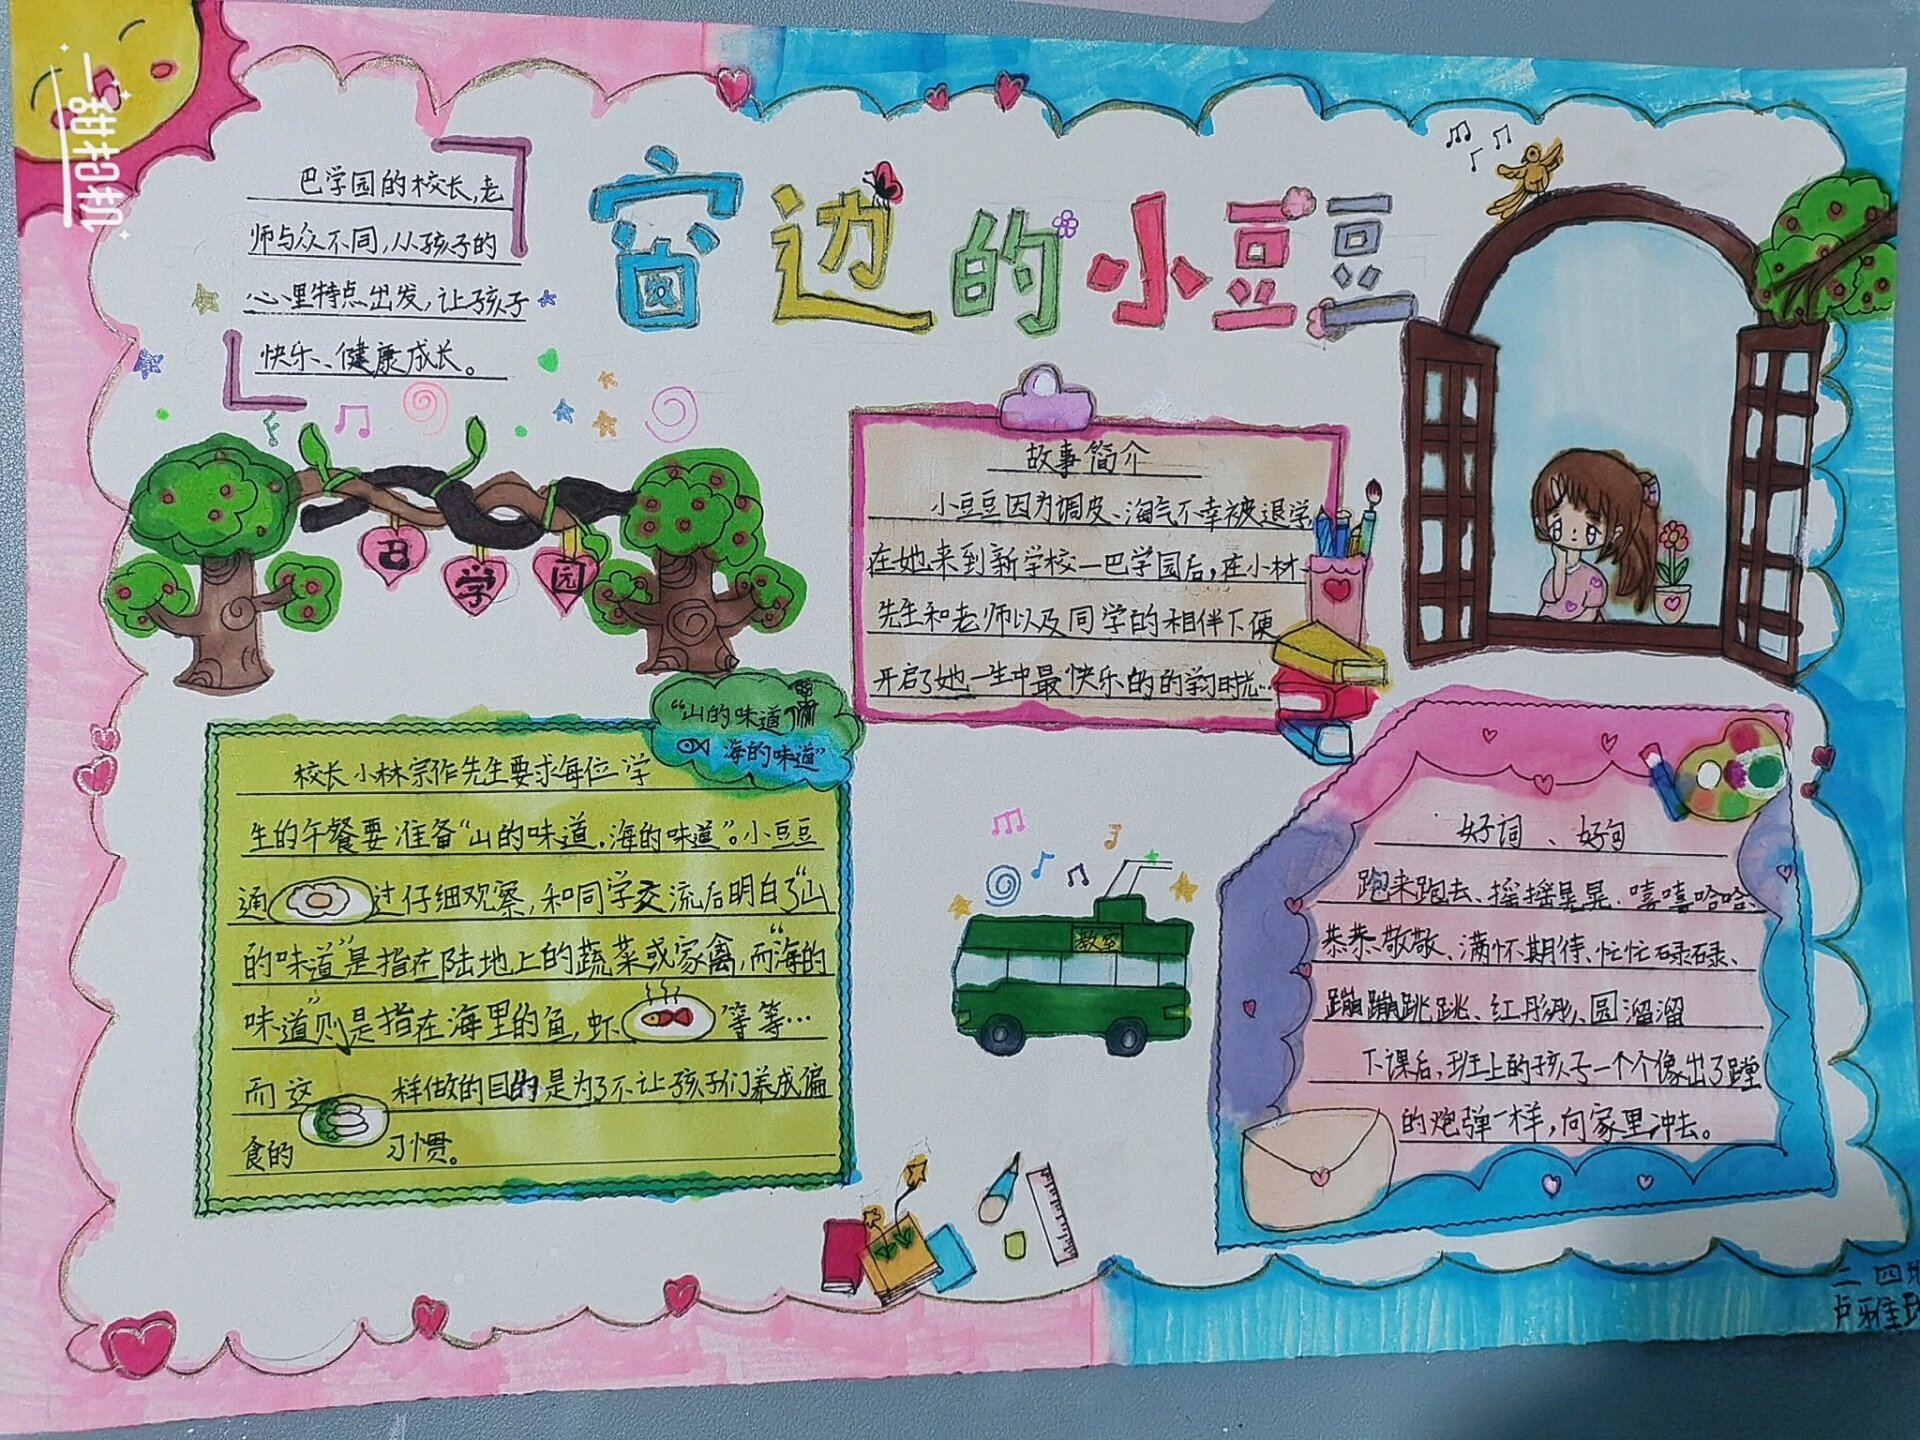 一甜相机
窗边的小豆豆
巴学园的校长,老
师与众不同,从孩子的
心里特点出发,让孩子
快乐、健康成长。
巴学园
故事简介
小豆豆因为调皮、淘气不幸被退学,
在她来到新学校—巴学园后,在小林
先生和老师以及同学的相伴下便
开启了她一生中最快乐的的学习时光…
“山的味道
海的味道”
校长小林宗作先生要求每位学
生的午餐要准备“山的味道.海的味道”。小豆豆
通过仔细观察,和同学交流后明白了“山
的味道”是指在陆地上的蔬菜或家禽,而“海的
味道”则是指在海里的鱼,虾等等…
而这样做的目的是为了不让孩子们养成偏
食的习惯。
教室
好词、好句
跑来跑去、摇摇晃晃、嘻嘻哈哈、
恭恭敬敬、满怀期待、忙忙碌碌、
蹦蹦跳跳、红彤彤、圆溜溜
下课后,班上的孩子一个个像出了膛
的炮弹一样,向家里冲去。
二 四班
卢雅